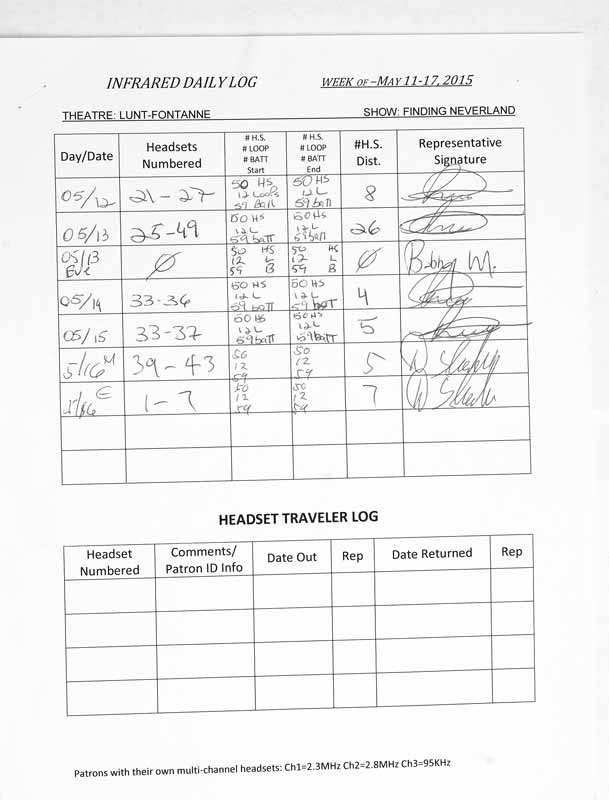 INFRARED DAILY LOG WEEK OF –MAY 11-17, 2015
THEATRE: LUNT-FONTANNE SHOW: FINDING NEVERLAND
Day/Date Headsets Numbered # H.S. # LOOP # BATT Start # H.S. # LOOP # BATT End #H.S. Dist. Representative Signature
05/12 21-27 50 HS 12 Loops 59 Batt 50 HS 12 L 59 batt 8
05/13 25-49 50 HS 12 L 59 batt 50 HS 12 L 59 batt 26
05/13 Eve Ø 50 HS 12 L 59 B 50 HS 12 L 59 B Ø Bobby M.
05/14 33-36 50 HS 12 L 59 batt 50 HS 12 L 59 batt 4
05/15 33-37 50 HS 12 L 59 batt 50 HS 12 L 59 batt 5
5/16 M 39-43 50 12 59 50 12 59 5
5/16 E 1-7 50 12 59 50 12 59 7
HEADSET TRAVELER LOG
Headset Numbered Comments/ Patron ID Info Date Out Rep Date Returned Rep
Patrons with their own multi-channel headsets: Ch1=2.3MHz Ch2=2.8MHz Ch3=95KHz